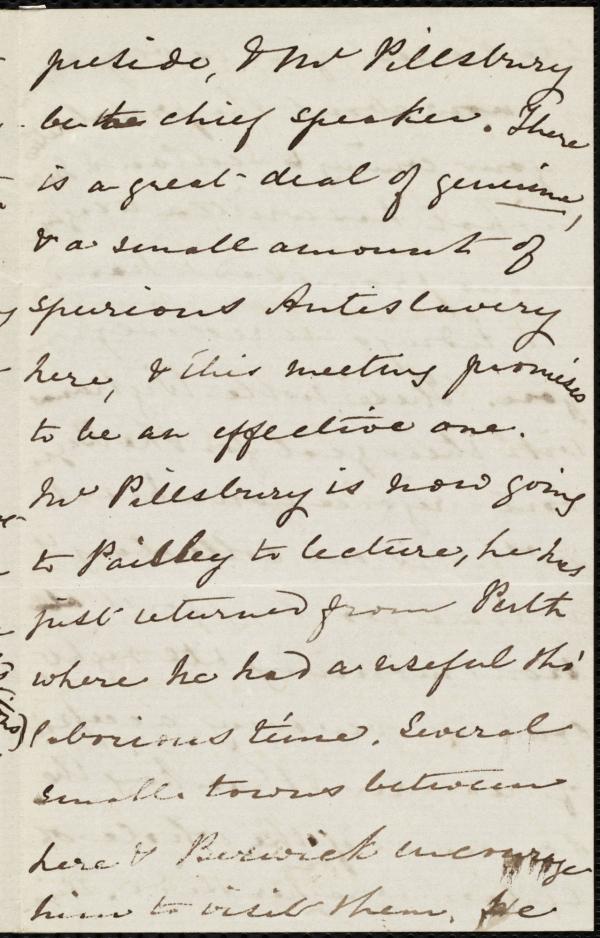 preside, & Mr Pillsbury
be the chief speaker. There
is a great deal of genuine,
& a small amount of
spurious Antislavery
here, & this meeting promises
to be an effective one.
Mr Pillsbury is now going
to Paisley to lecture, he has
just returned from Perth
where he had a useful tho'
laborious time. Several
small towns between
here & Berwick encourage
him to visit them. He